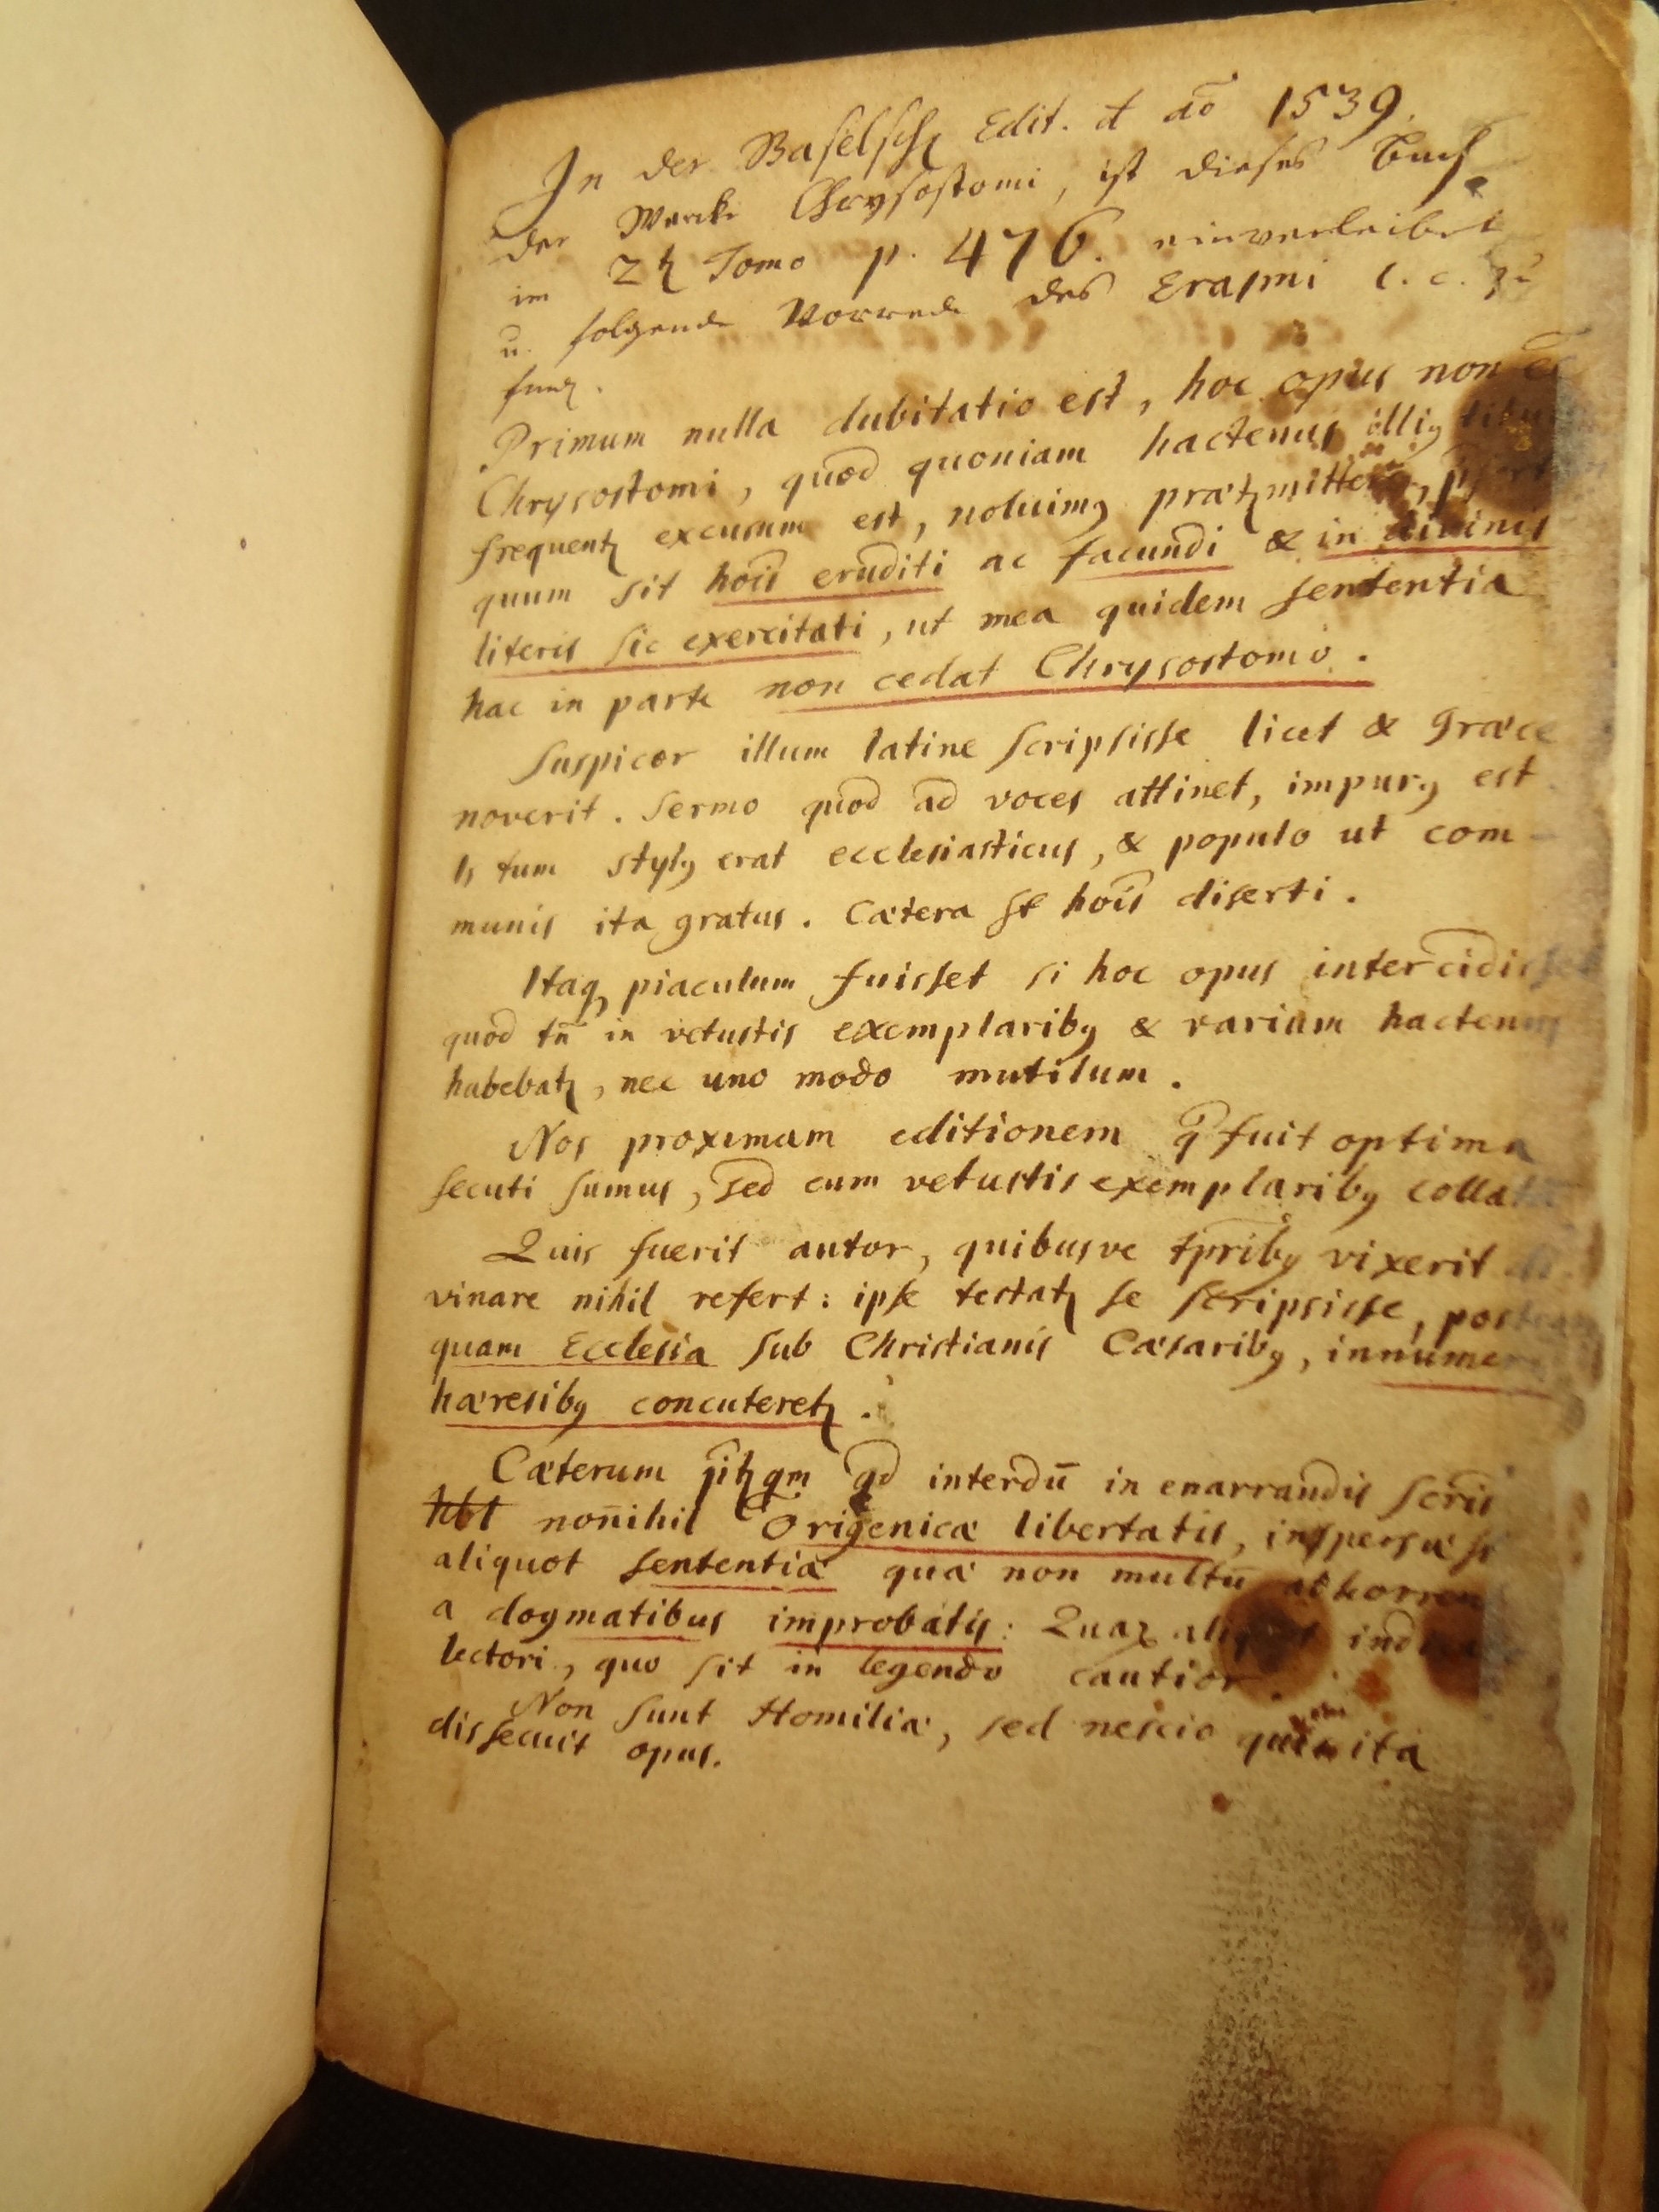 In der Baselsch Edit. d ao 1539.
der Wercke Chrysostomi, ist dieses Buch
im 2ten Tomo p. 476. einverleibet
u. folgende Vorrede des Erasmi l. c. zu
find.
Primum nulla dubitatio est, hoc opus non
Chrysostomi, quod quoniam hactenus illig
frequentr excusum est, noluimg prætrmittere,
quum sit hois eruditi ac facundi & in divinis
literis sic exercitati, ut mea quidem sententia
hac in parte non cedat Chrysostomo.
Suspicor illum latine scripsisse licet & Græce
noverit. Sermo quod ad voces attinet, impurg est.
Is tum stylg erat ecclesiasticus, & populo ut com-
munis ita gratus. Cætera st hois diserti.
Itaq piaculum fuisset si hoc opus intercidisset
quod tn in vetustis exemplaribg & varium hactenus
habebatr, nec uno modo mutilum.
Nos proximam editionem q fuit optima
secuti sumus, sed cum vetustis exemplaribg
Quis fuerit autor, quibusve tpribg vixerit
vinare nihil refert: ipse testatr se scripsisse,
quam Ecclesia sub Christianis Cæsaribg,
hæresibg concuteretr.
Cæterum qd interdū in enarrandis
non̄ihil Origenicæ libertatis, inspersæ st
aliquot sententiæ quæ non multū
a dogmatibus improbatis:
lectori, quo sit in legendo cautior.
Non sunt Homiliæ, sed nescio quis ita
dissecuit opus.